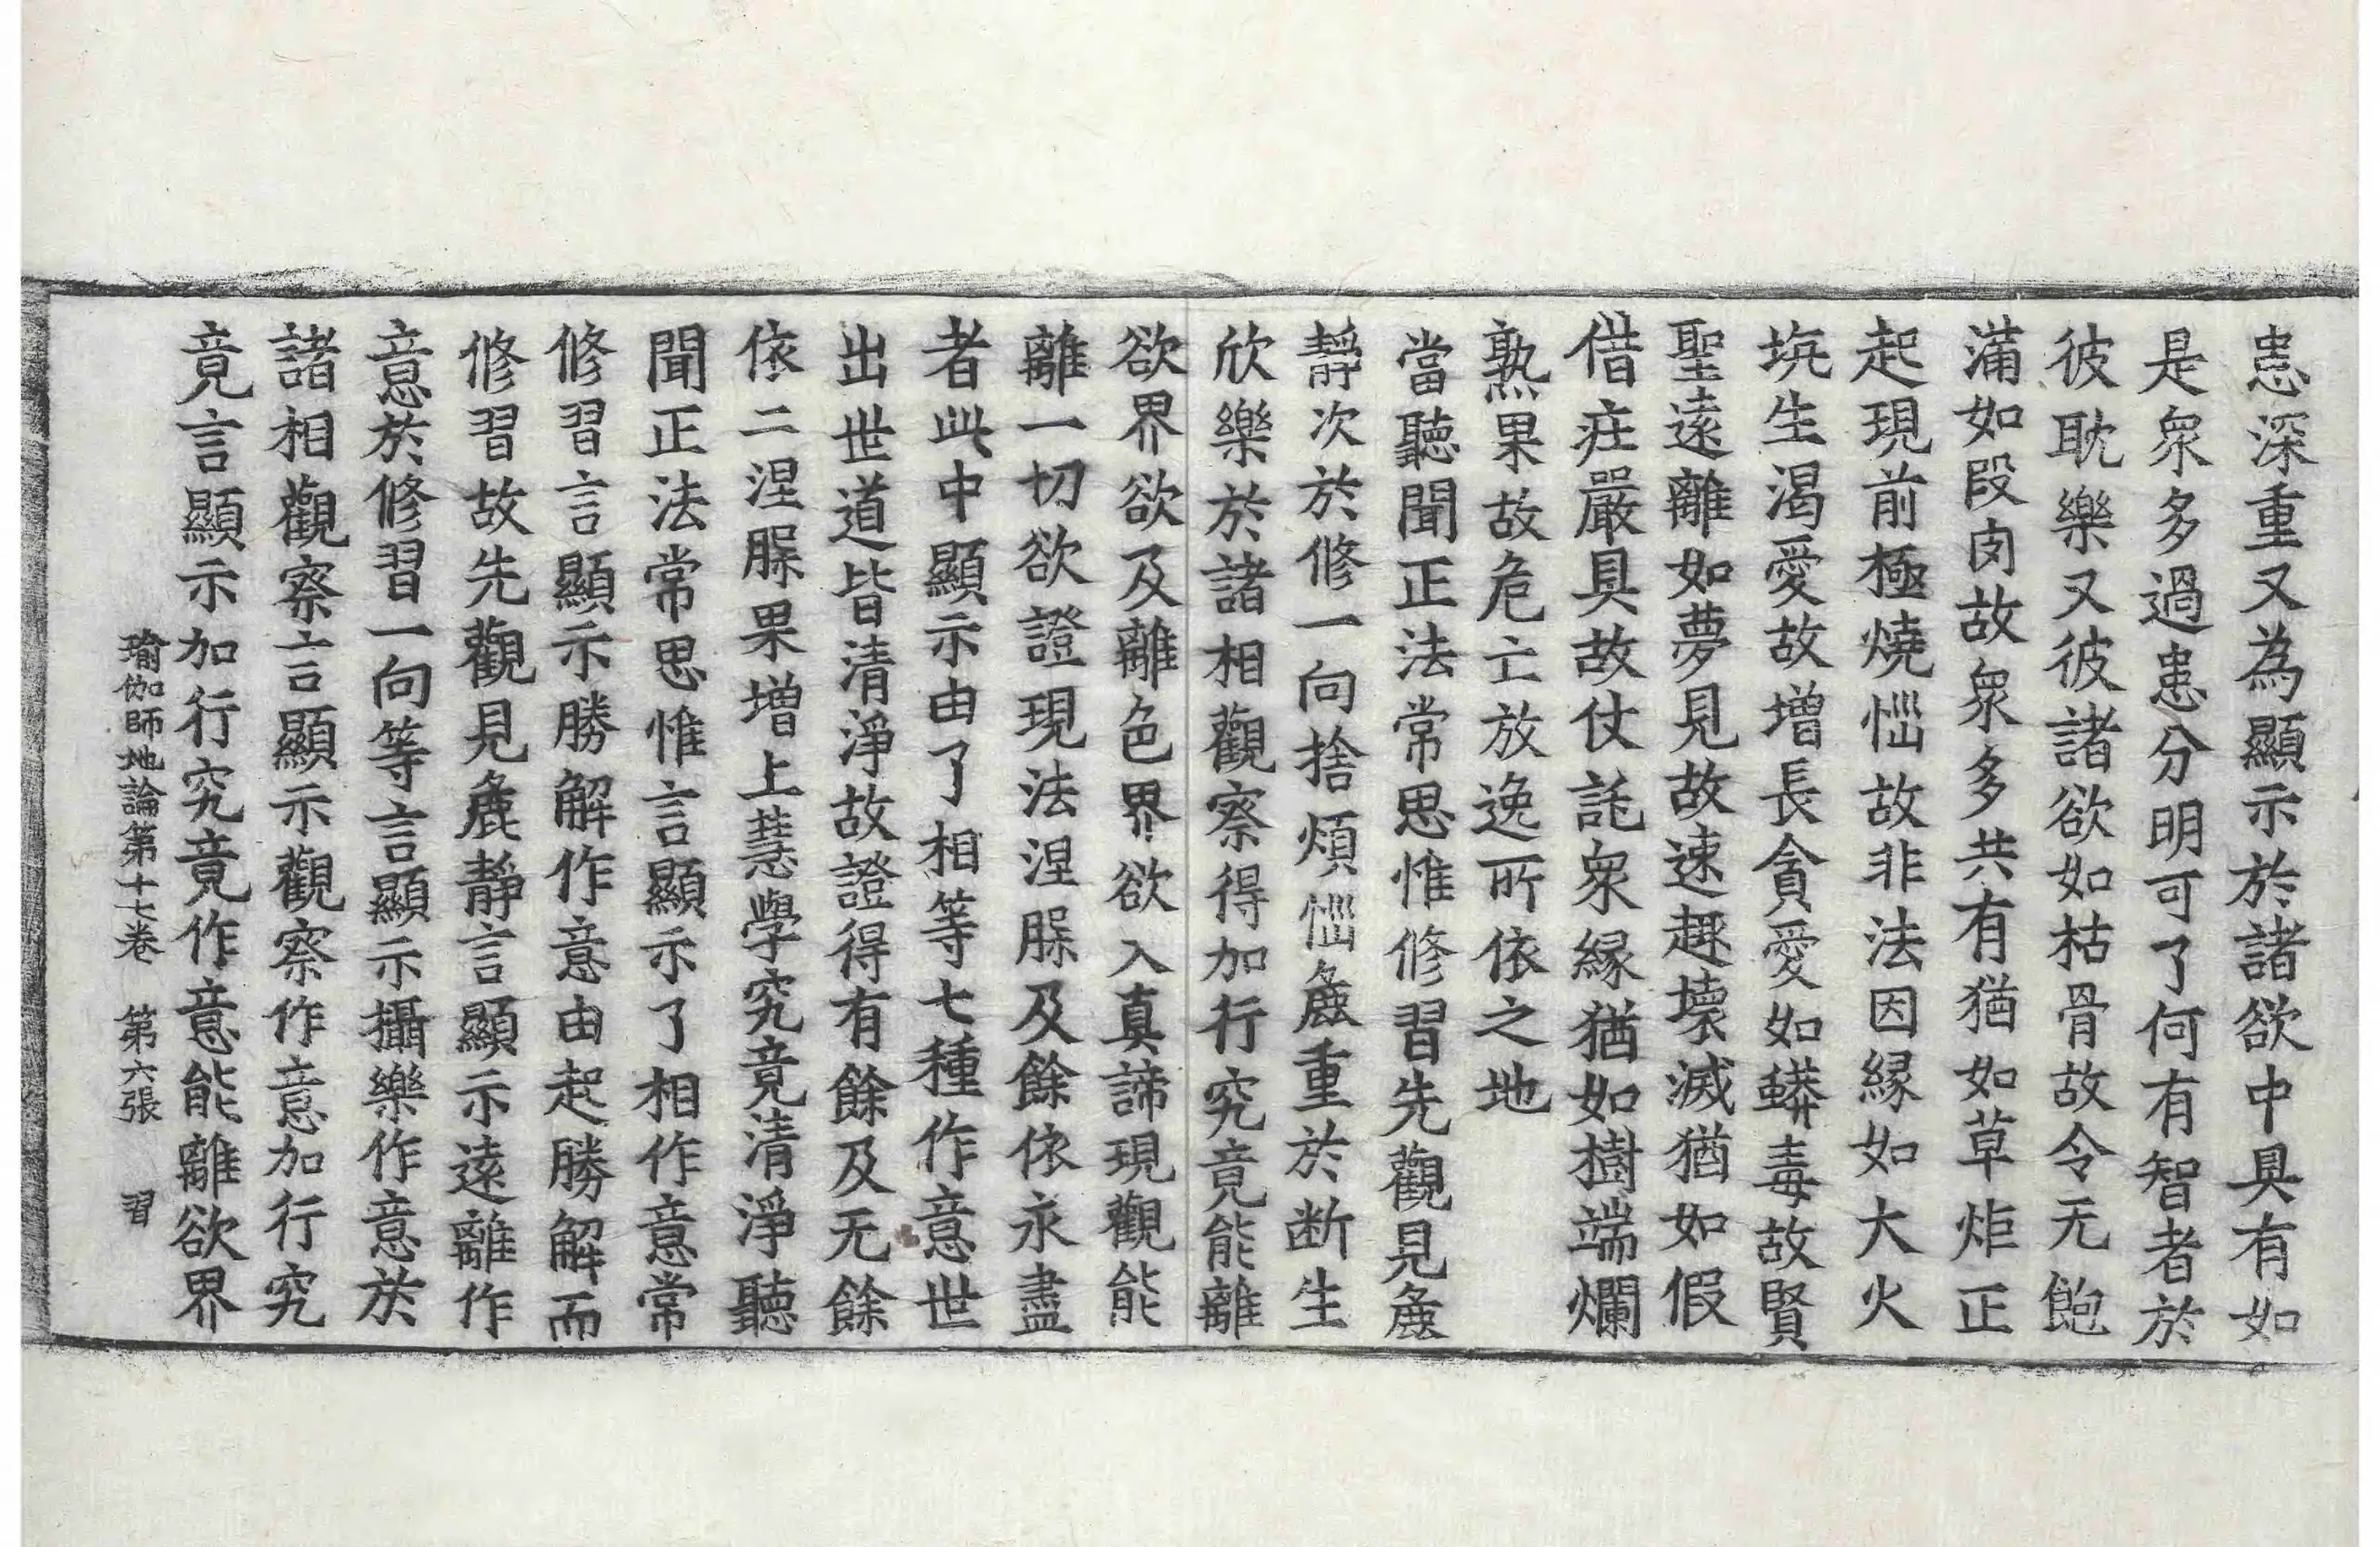 患深重又為顯示於諸欲中具有如
是衆多過患分明可了何有智者於
彼耽樂又彼諸欲如枯骨故令无飽
滿如段肉故衆多共有猶如草炬正
起現前極燒惱故非法因緣如大火
坑生渴愛故增長貪愛如蟒毒故賢
聖遠離如夢見故速趣壞滅猶如假
借莊嚴具故仗託衆緣猶如樹端爛
熟果故危亡放逸所依之地
當聽聞正法常思惟修習先觀見麁
靜次於修一向捨煩惱麁重於断生
欣樂於諸相觀察得加行究竟能離
欲界欲及離色界欲入真諦現觀能
離一切欲證現法涅槃及餘依永盡
者此中顯示由了相等七種作意世
出世道皆清淨故證得有餘及无餘
依二涅槃果增上慧學究竟清淨聽
聞正法常思惟言顯示了相作意常
修習言顯示勝解作意由起勝解而
修習故先觀見麁靜言顯示遠離作
意於修習一向等言顯示攝樂作意於
諸相觀察言顯示觀察作意加行究
竟言顯示加行究竟作意能離欲界
瑜伽師地論第十七卷　第六張　習